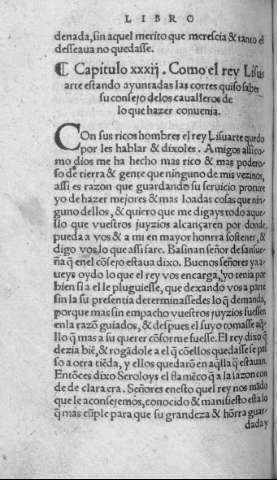 LIBRO
denada, sin aquel merito que merescia & tanto el
desseaua no quedasse.
¶ Capitulo xxxij. Como el rey Lisu
arte estando ayuntadas las cortes quiso saber
su consejo delos caualleros de
lo que hazer conuenia.
Con sus ricos hombres el rey Lisuarte quedo
por les hablar & dixoles. Amigos assi co
mo dios me ha hecho mas rico & mas podero-
so de tierra & gente que ninguno de mis vezinos,
assi es razon que guardando su seruicio procure
yo de hazer mejores & mas loadas cosas que nin
guno dellos, & quiero que me digays todo aque-
llo que vuestros juyzios alcançaren por donde
pueda a vos & a mi en mayor honrra sostener, &
digo vos lo que assi fare. Basinan señor de sansue
ña q̃ enel cõsejo estaua dixo. Buenos señores ya a-
ueys oydo lo que el rey vos encarga, yo ternia por
bien si a el le pluguiesse, que dexando vos a parte
sin la su presentia determinassedes lo q̃ demanda,
porque mas sin empacho vuestros juyzios fuessen
enla razõ guiados, & despues el suyo tomasse aq̃-
llo q̃ mas a su querer cõforme fuesse. El rey dixo q̃
dezia biẽ, & rogãdole a el q̃ cõellos quedasse se pa
so a otra tiẽda, y ellos quedarõ en aq̃lla q̃ estauan.
Entõces dixo Seroloys el flamẽco q̃ a la sazon con
de de clara era. Señores enesto quel rey nos mãdo
que le aconsejemos, conocido & manifiesto esta lo
q̃ mas cũple para que su grandeza & hõrra guar-
dada y